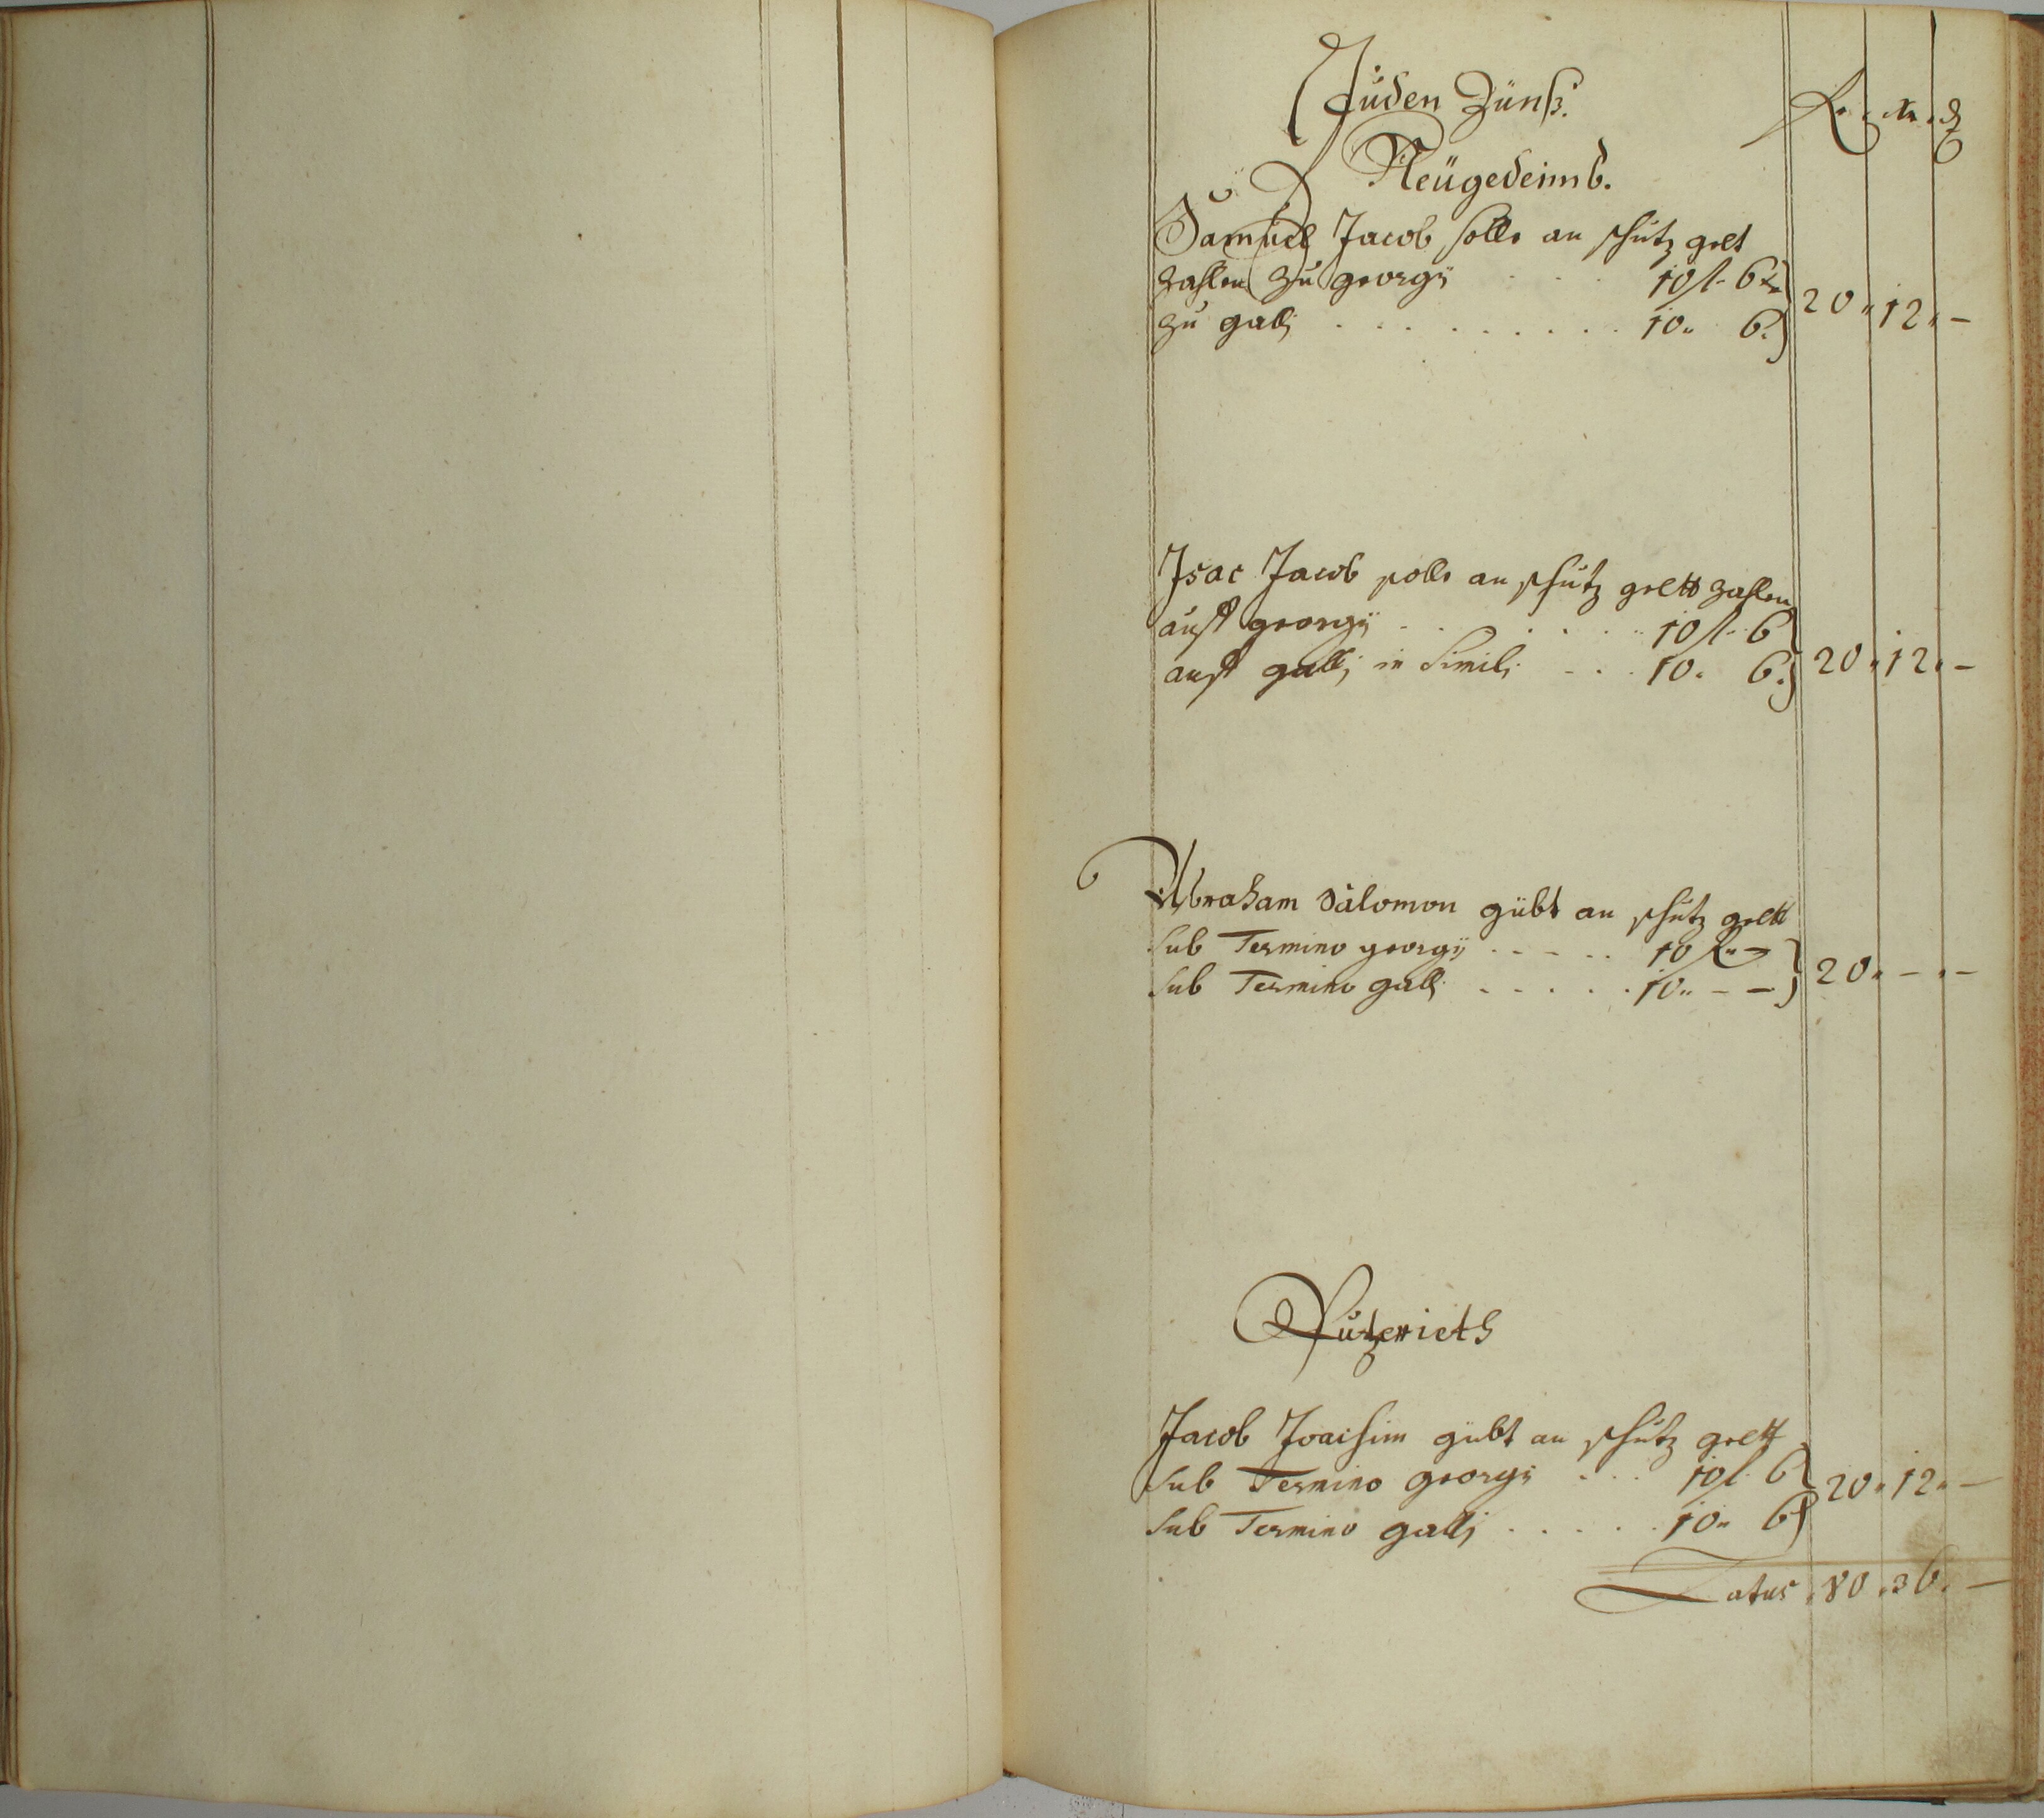 Juden Zünß.
f. xr. ₰
Neügedeimb.
Samuel Jacob solle an schutz gelt
zahlen zu georgy . . . 10 f. 6 xr
zu gallj . . . . . . . . . . 10. 6. } 20. 12. –
Isac Jacob solle an schutz geltt zahlen
auff georgij . . . . . . 10 f. 6
auff gallj in Simili . . . 10. 6. } 20. 12. –
Abraham Salomon gübt an schutz geltt
sub Termino georgij . . . . . 10 f. –
sub Termino gallj . . . . . 10. – – } 20. – . –
Jacob Joachim gübt an schutz geltt
sub Termino georgij . . . 10 f. 6
sub Termino gallj . . . . . 10. 6 } 20. 12. –
Latus . 80 . 36. –